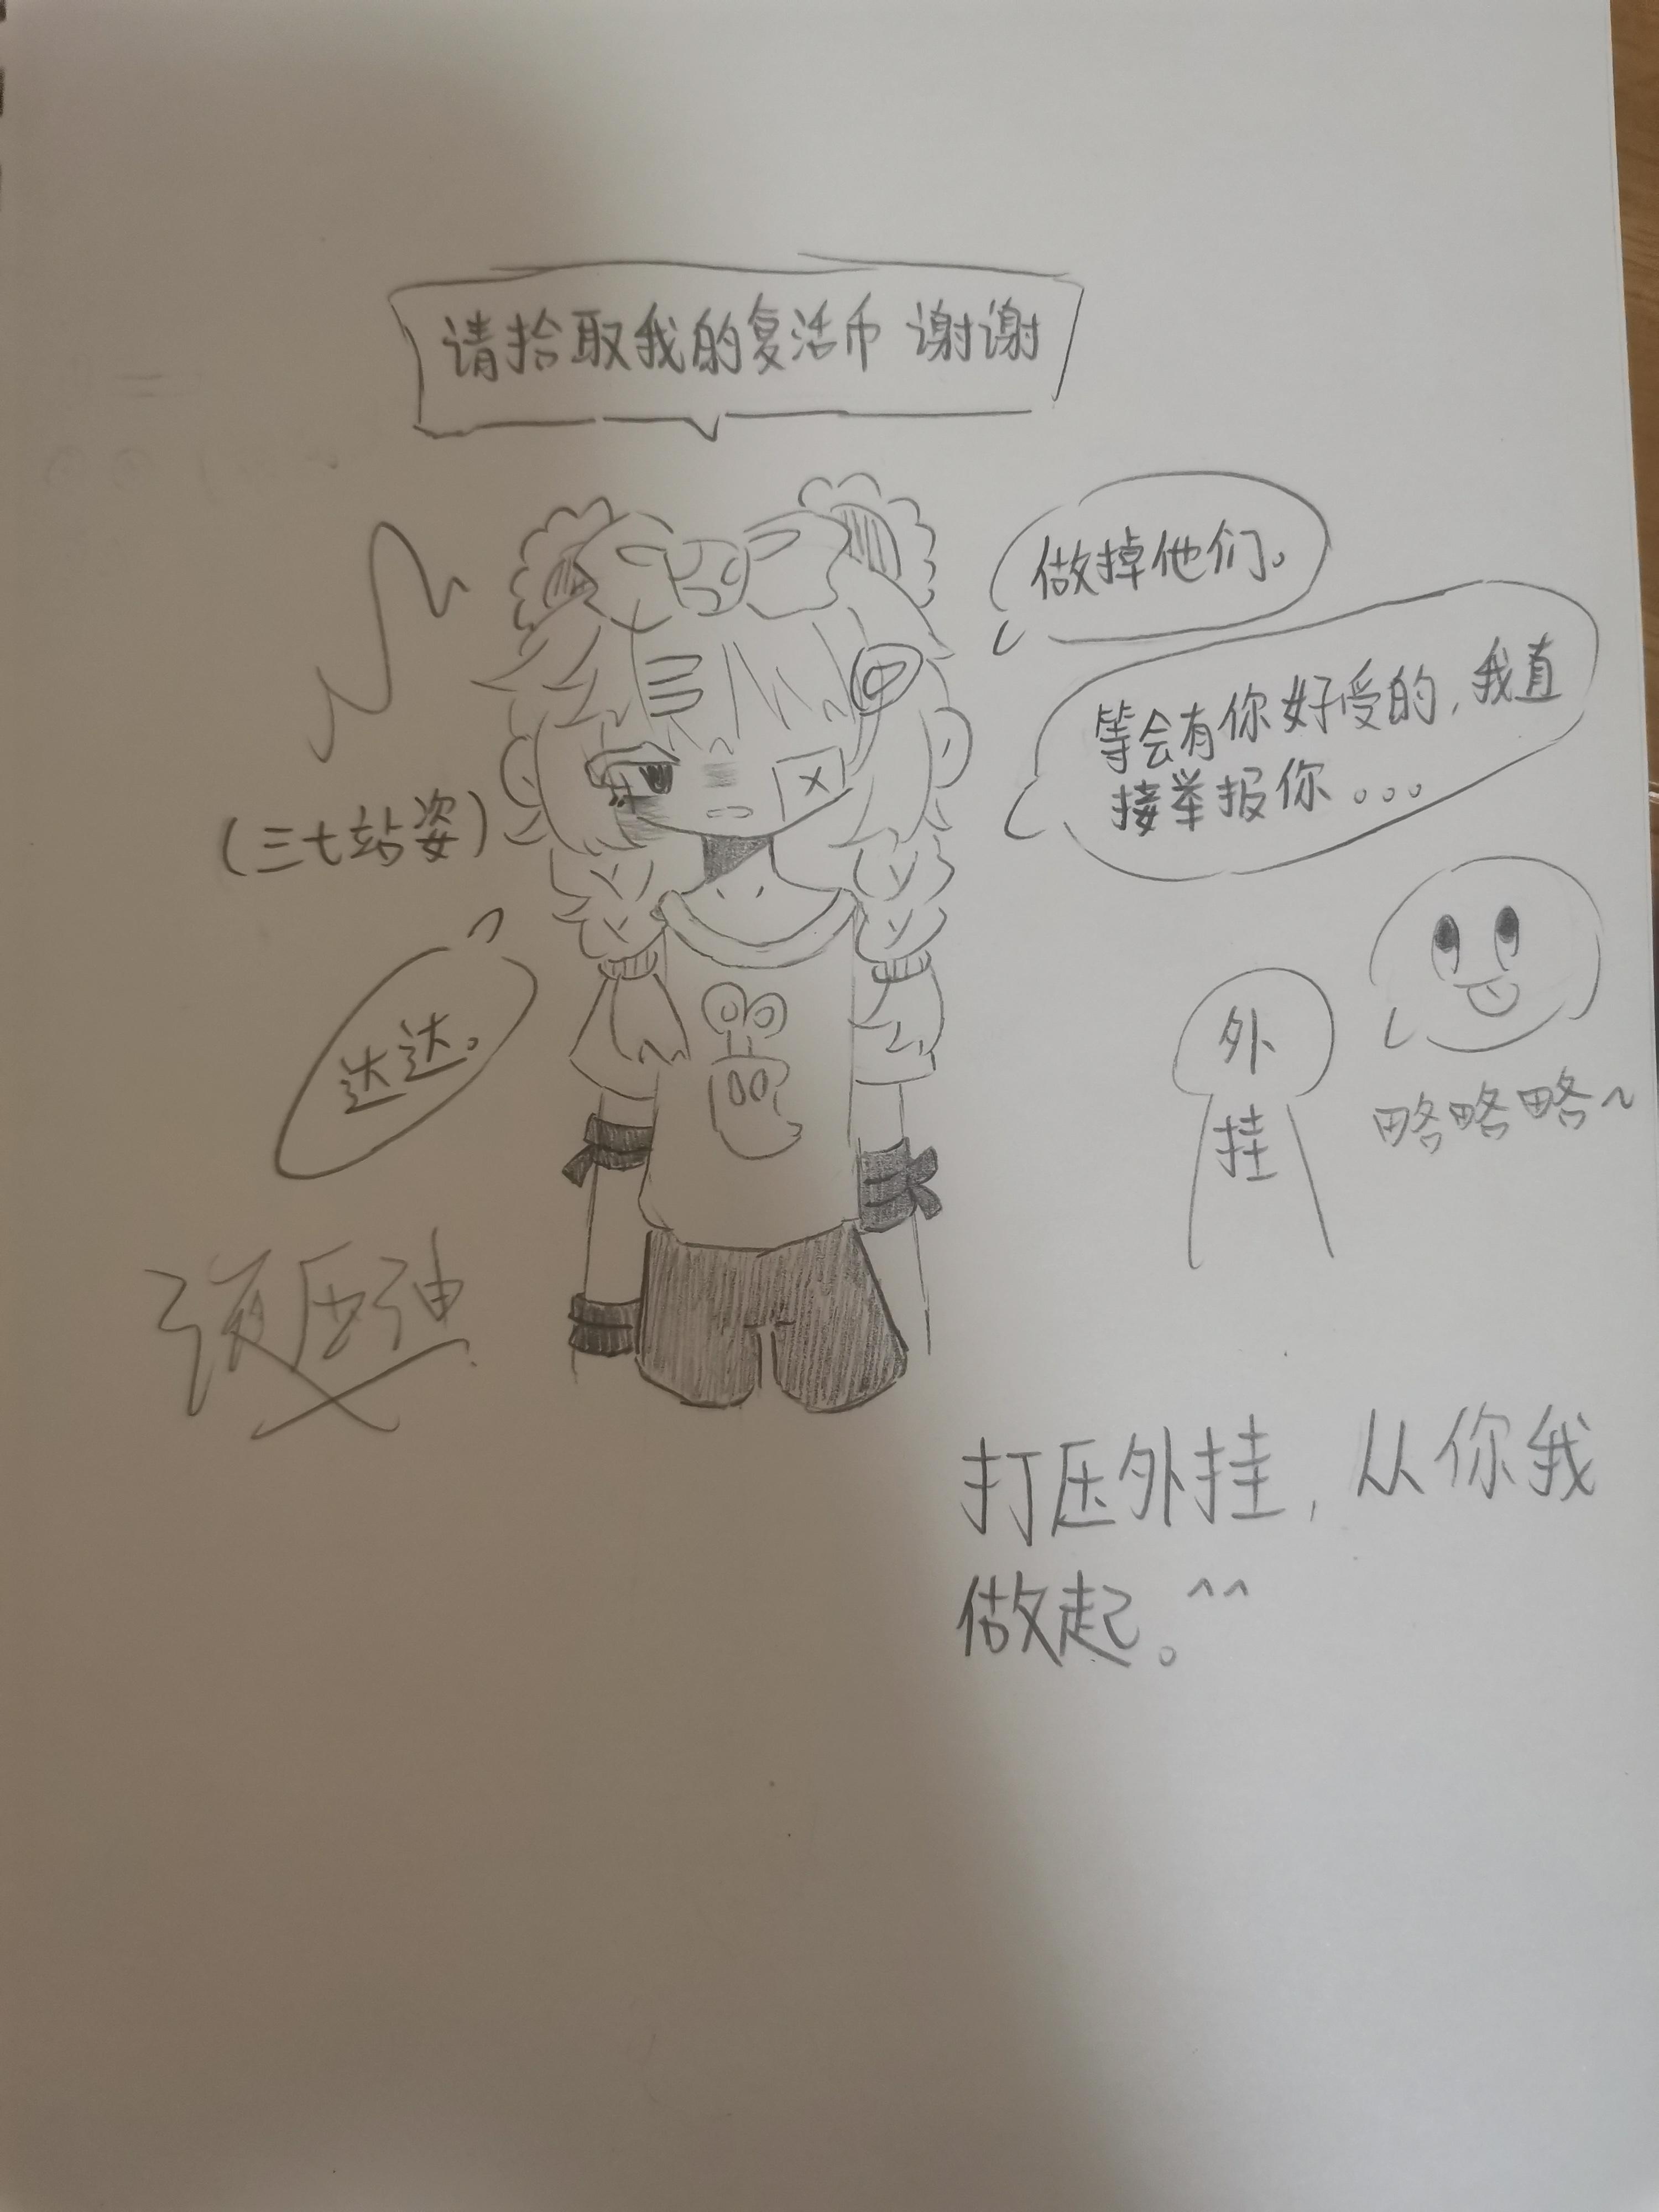 请拾取我的复活币 谢谢
做掉他们。
等会有你好受的，我直
接举报你。。。
(三七站姿)
达达。
外
挂
略略略~
打压外挂，从你我
做起。^^